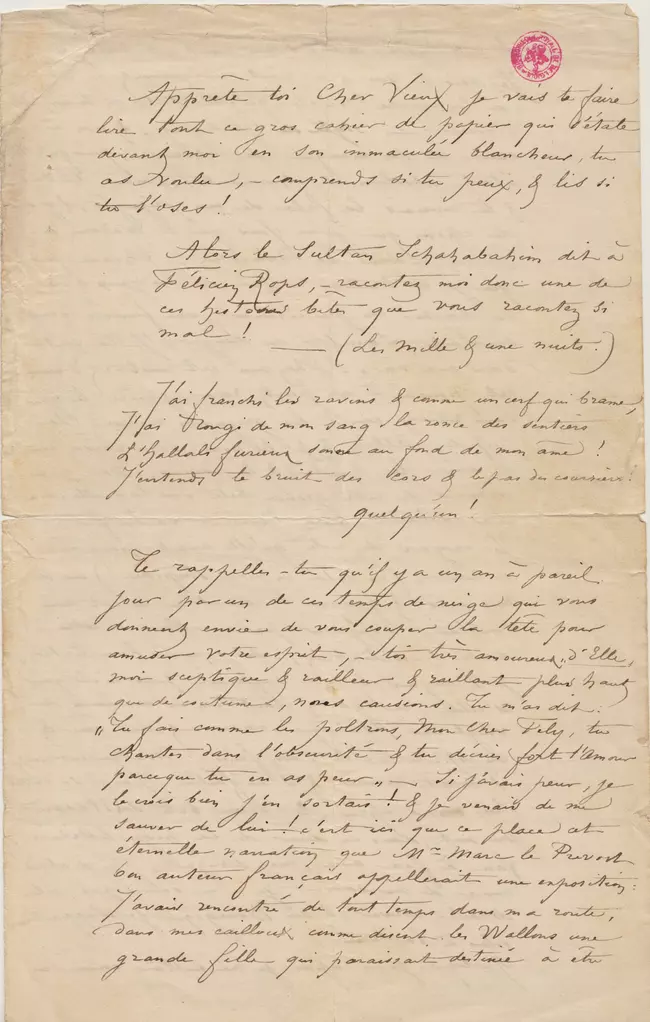 Apprête toi Cher Vieux, je vais te faire
lire tout ce gros cahier de papier qui s'étale
devant moi en son immaculée blancheur, tu
as voulu, – comprends si tu peux, & lis si
tu l'oses!
Alors le Sultan Schahabahim dit à
Félicien Rops, – racontez moi donc une de
ces histoires bêtes que vous racontez si
mal!
— (Les Mille & une nuits.)
J'ai franchi les ravins & comme un cerf qui brame,
J'ai rougi de mon sang la ronce des sentiers
L'hallali furieux sonne au fond de mon âme!
J'entends le bruit des cors & le pas des coursiers!
quelqu'un!
Te rappelles-tu qu'il y a un an à pareil
jour par un de ces temps de neige qui vous
donnent envie de vous couper la tête pour
amuser votre esprit, – toi très amoureux „d'Elle,
moi sceptique & railleur & raillant plus haut
que de coutume, nous causions. Tu m'as dit:
„Tu fais comme les poltrons, Mon Cher Fély, tu
chantes dans l'obscurité & tu décries fort l'Amour
parceque tu en as peur" – Si j'avais peur, je
le crois bien j'en sortais! & je venais de me
sauver de lui! c'est ici que ce place cet
éternelle narration que Mr Marc le Prevost
bon auteur français appellerait une exposition:
J'avais rencontré de tout temps dans ma route,
dans mes cailloux comme disent les Wallons une
grande fille qui paraissait destinée à être